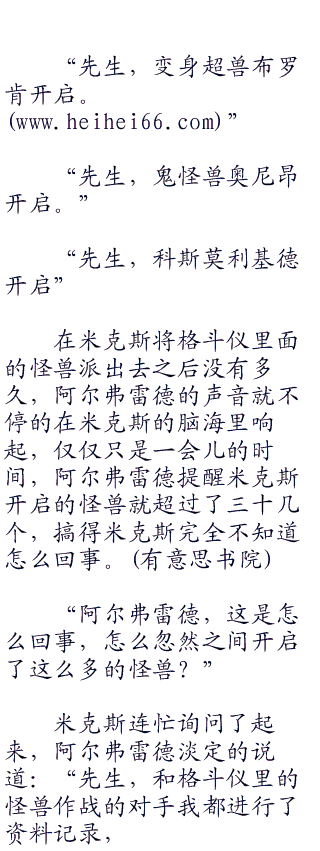 “先生，变身超兽布罗
肯开启。
(www.heihei66.com)”
“先生，鬼怪兽奥尼昂
开启。”
“先生，科斯莫利基德
开启”
在米克斯将格斗仪里面
的怪兽派出去之后没有多
久，阿尔弗雷德的声音就不
停的在米克斯的脑海里响
起，仅仅只是一会儿的时
间，阿尔弗雷德提醒米克斯
开启的怪兽就超过了三十几
个，搞得米克斯完全不知道
怎么回事。(有意思书院)
“阿尔弗雷德，这是怎
么回事，怎么忽然之间开启
了这么多的怪兽？”
米克斯连忙询问了起
来，阿尔弗雷德淡定的说
道：“先生，和格斗仪里的
怪兽作战的对手我都进行了
资料记录，